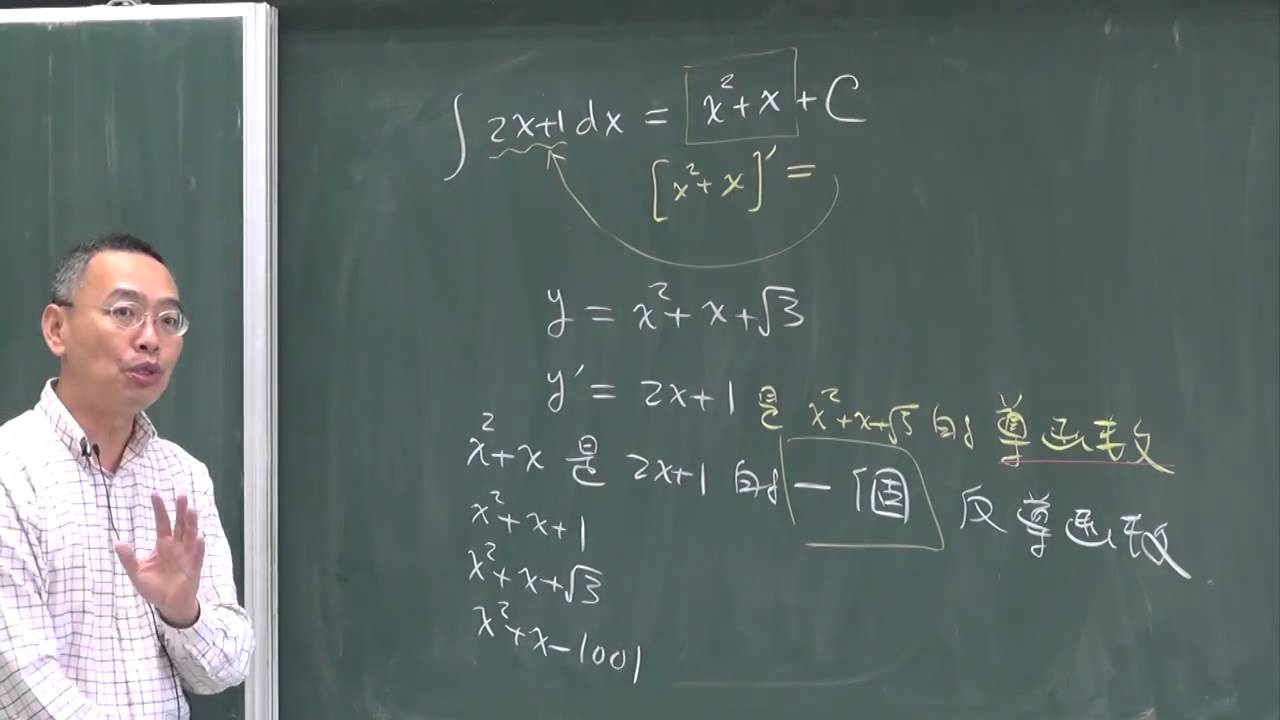 ∫ 2x+1 dx = x²+x + C
[x²+x]' =
y = x²+x+√3
y' = 2x+1 是 x²+x+√3 的 導函數
x²+x 是 2x+1 的 一個 反導函數
x²+x+1
x²+x+√3
x²+x-1001